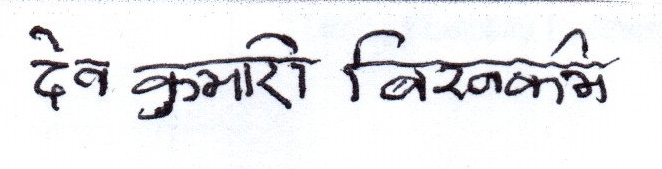 देव कुमारी बिस्वकर्म